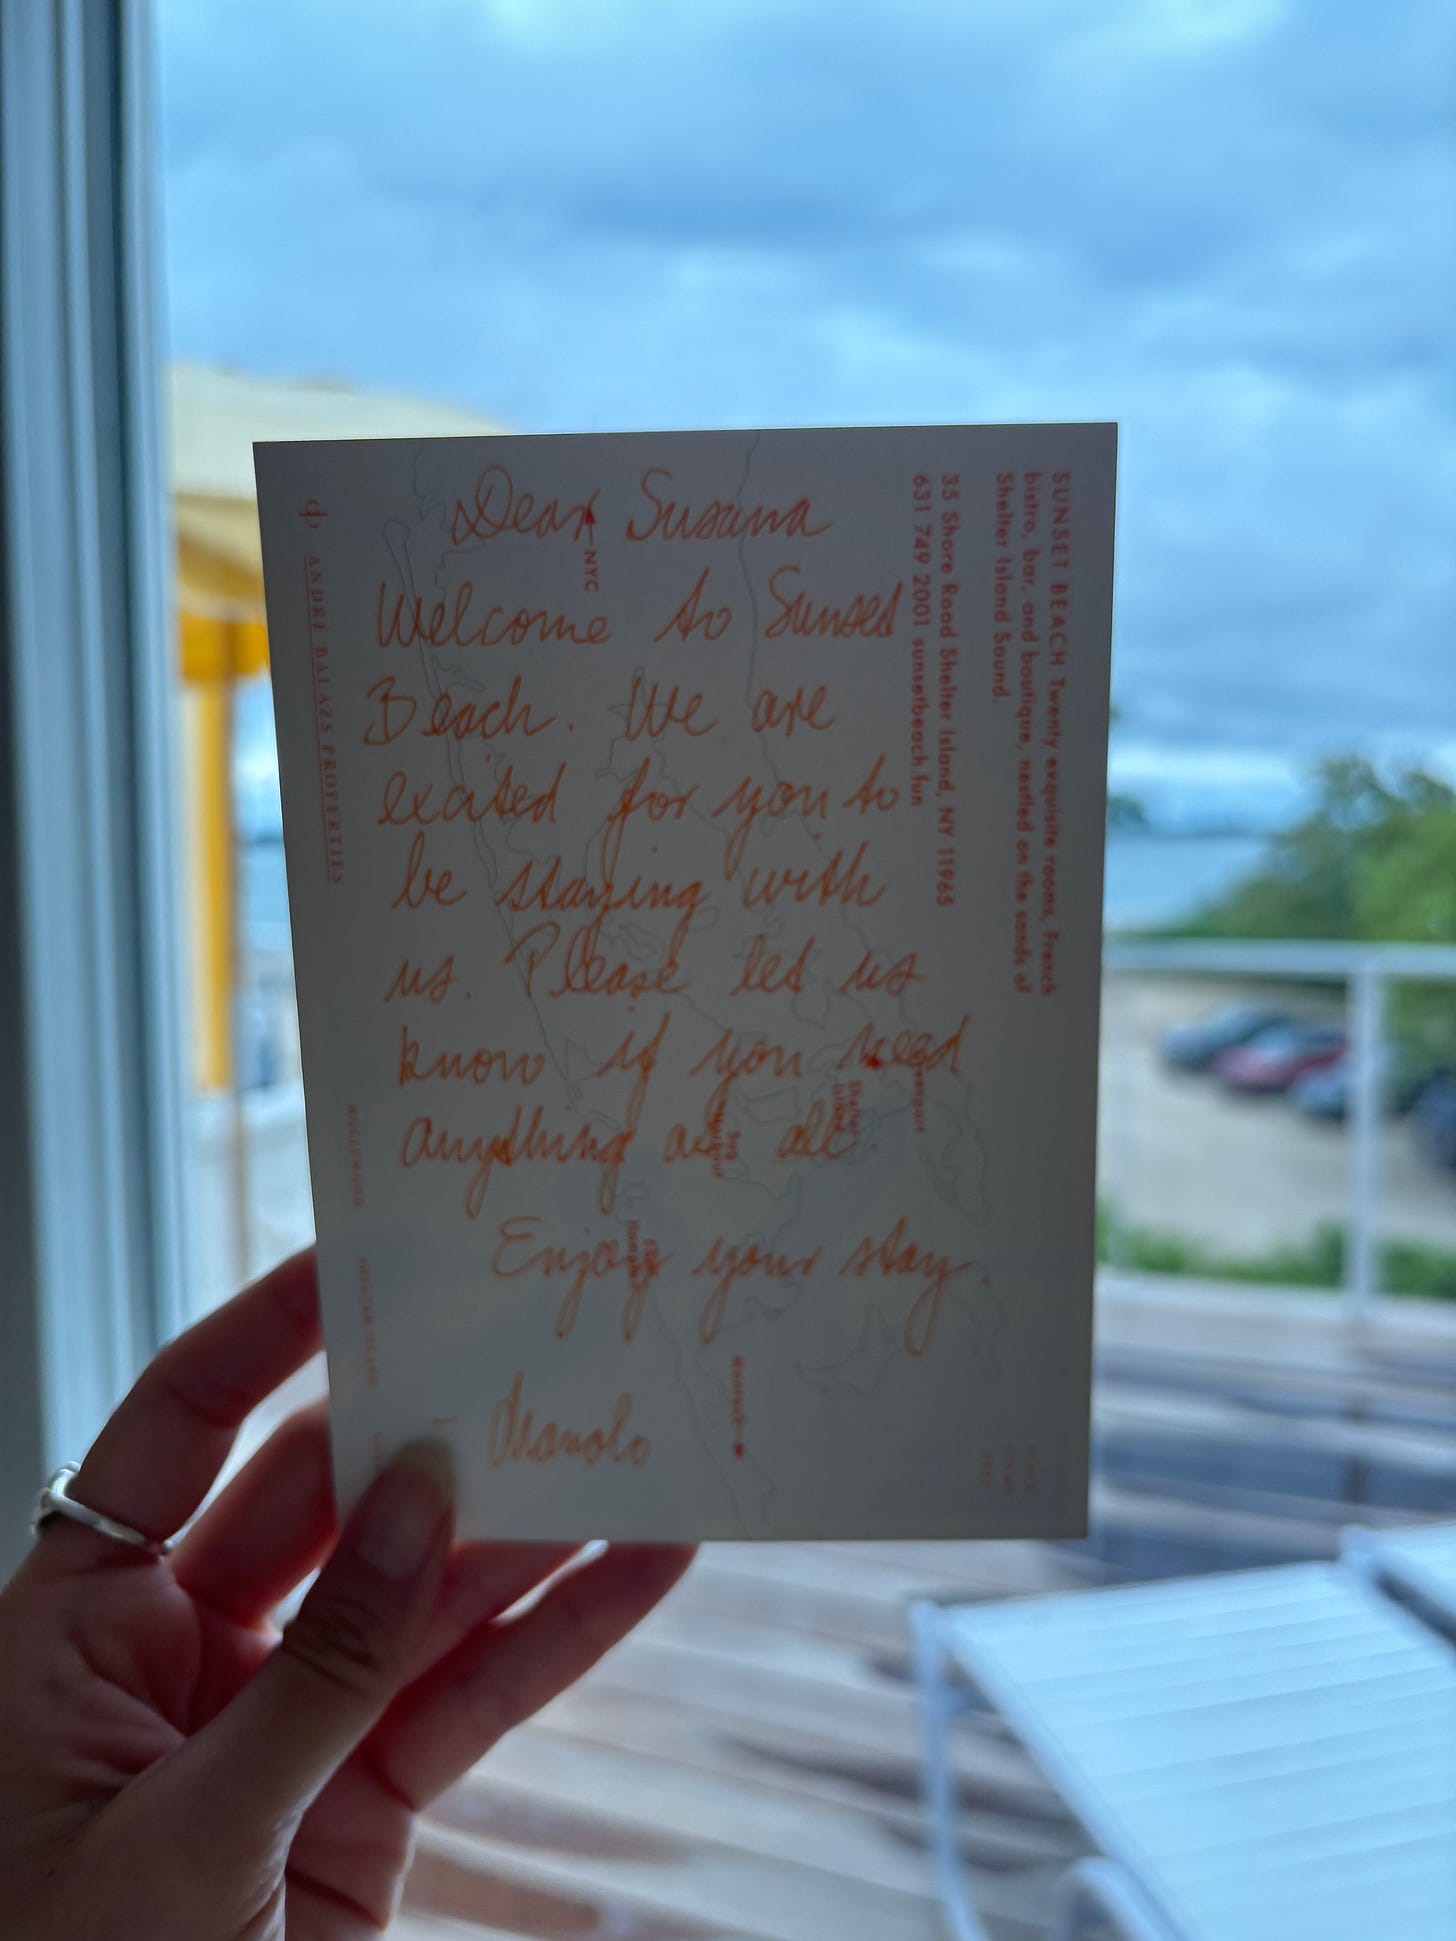 Dear Susana
Welcome to Sunset
Beach. We are
excited for you to
be staying with
us. Please let us
know if you need
anything at all.
Enjoy your stay.
Manolo
SUNSET BEACH Twenty exquisite rooms, French
bistro, bar, and boutique, nestled on the sands of
Shelter Island Sound.
35 Shore Road Shelter Island, NY 11965
631 749 2001 sunsetbeach.fun
ANDRÉ BALAZS PROPERTIES
NYC
Greenport
Shelter
Island
Sag
Harbour
East
Hampton
Montauk
SHELTER ISLAND